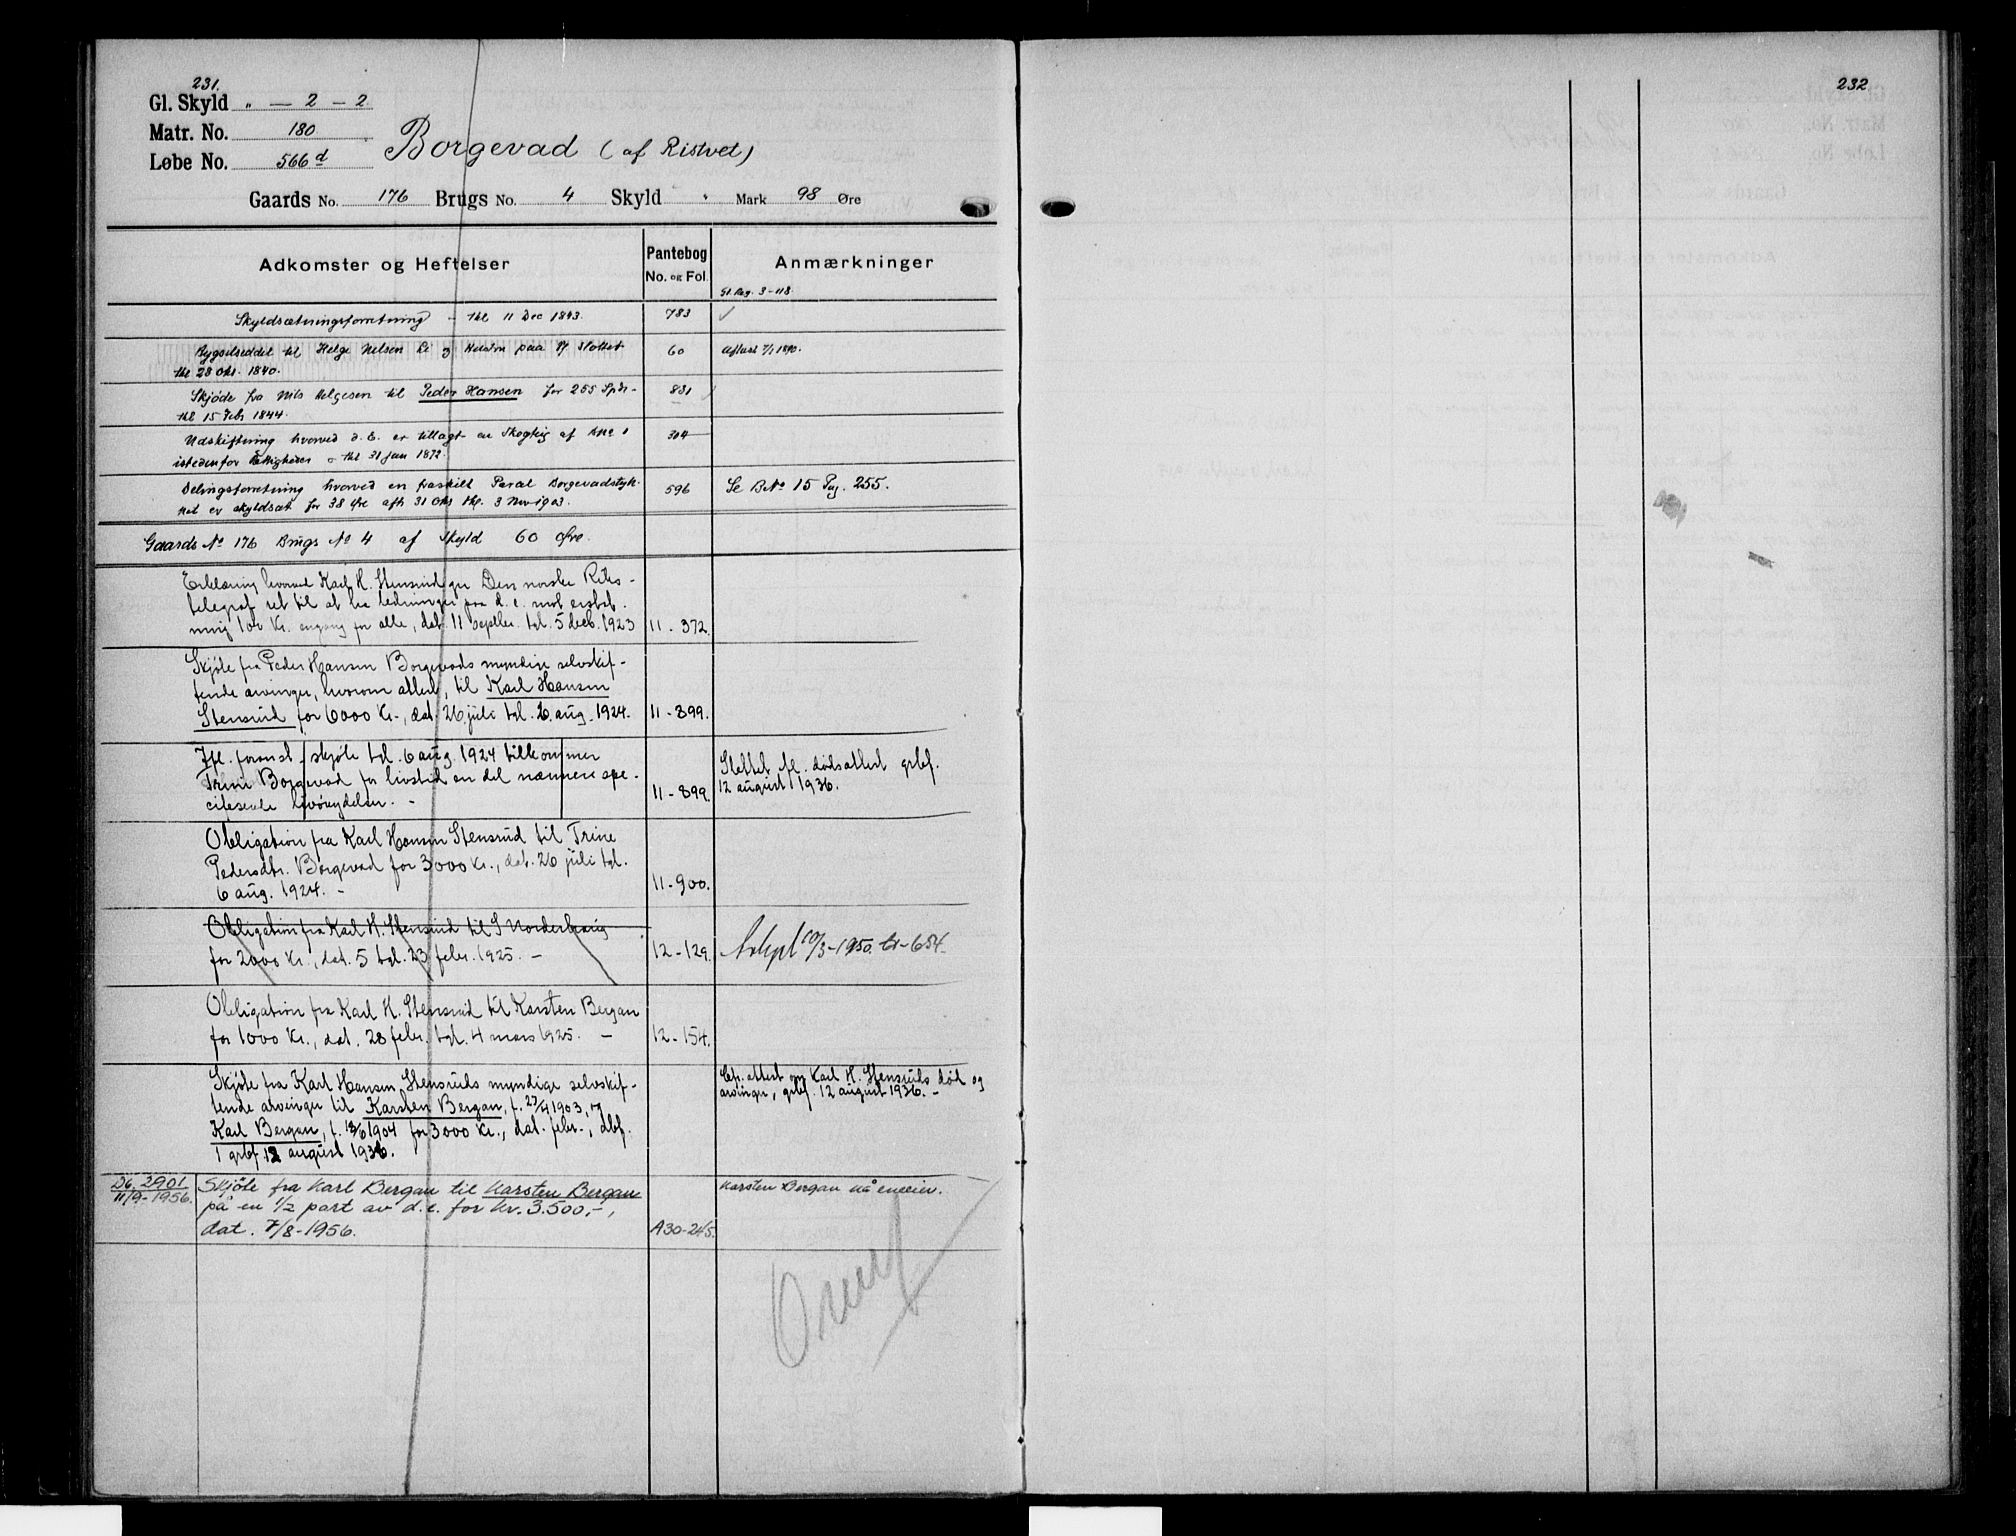 231.
Gl. Skyld " — 2 — 2
Matr. No. 180
Løbe No. 566 d
Borgevad (af Ristvet)
Gaards No. 176 Brugs No. 4 Skyld " Mark 98 Øre
Adkomster og Heftelser
Pantebog
No. og Fol.
Anmærkninger
Gl. Reg. 3-118.
Skyldsætningsforretning – thl 11 Dec 1843. 783
Bygselseddel til Helge Nelsen paa 60 Aflæst 7/1 1890.
thl 28 Okt. 1840.
Skjøde fra Nils Helgesen til Peder Hansen for 255 Spdr – 831
thl 15 Febr 1844.
Udskiftning hvorved d. E. er tillagt en Skogteig af 304
istedenfor Rettigheder – thl 31 Jan 1872.
Delingsforretning hvorved en fraskilt Parcel Borgevadstyk- 596 Se B.No 15 Pag. 255.
ket er skyldsat for 38 Øre afh 31 Okt thl. 3 Nov 1903.
Gaards No 176 Brugs No 4 af Skyld 60 Øre.
Erklæring hvorved Karl H. Stensrud gir Den norske Riks-
telegraf ret til at ha ledninger paa d. e. mot erstat-
ning 100 Kr. engang for alle, dat. 11 septbr. tgl. 5 decb. 1923 11 - 372.
Skjøte fra Peder Hansen Borgevads myndige selvskif-
tende arvinger, hvorom attest, til Karl Hansen
Stensrud for 6000 Kr., dat. 26 juli tgl. 6. aug. 1924. 11 - 899.
Ifl. foranst. skjøte tgl. 6 aug. 1924 tilkommer
Trine Borgevad for livstid en del nærmere spe-
cifiserte livørsydelser. – 11 - 899.
Slettet fl. dødsattest grbf.
12 august 1936.
Obligation fra Karl Hansen Stensrud til Trine
Pedersdtr. Borgevad for 3000 Kr., dat. 26 juli tgl.
6 aug. 1924. – 11 - 900.
Obligation fra Karl H. Stensrud til S Norderhaug
for 2000 Kr., dat. 5 tgl. 23 febr. 1925. – 12 - 129. 10/3 - 1950. 654.
Obligation fra Karl H. Stensrud til Karsten Bergan
for 1000 Kr., dat. 28 febr. tgl. 4 mars 1925. – 12 - 154.
Skjøte fra Karl Hansen Stensruds myndige selvskif-
tende arvinger til Karsten Bergan, f. 27/4 1903, og
Karl Bergan, f. 18/6 1904 for 3000 Kr., dat. febr., dbf.
grbf. 12 august 1936.
attest om Karl H. Stensruds død og
arvinger, grbf. 12 august 1936. –
Db. 2901
11/9-1956.
Skjöte fra Karl Bergan til Karsten Bergan
på en 1/2 part av d.e. for kr. 3.500,-,
dat. 7/8-1956. A30-245.
Karsten Bergan nå eneeier.
232